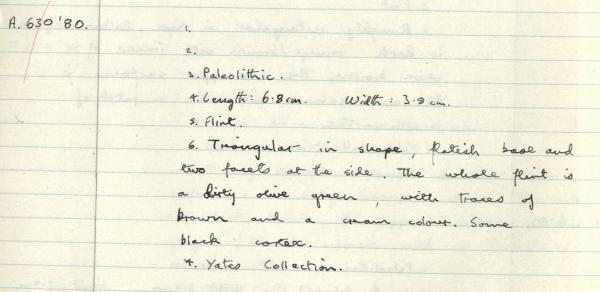 A.630'80.
1.
2.
3. Paleolithic.
4. Length: 6·8cm. Width: 3·9 cm.
5. Flint.
6. Triangular in shape, flatish base and
two facets at the side. The whole flint is
a dirty olive green, with traces of
brown and a cream colour. Some
black cortex.
7. Yates Collection.